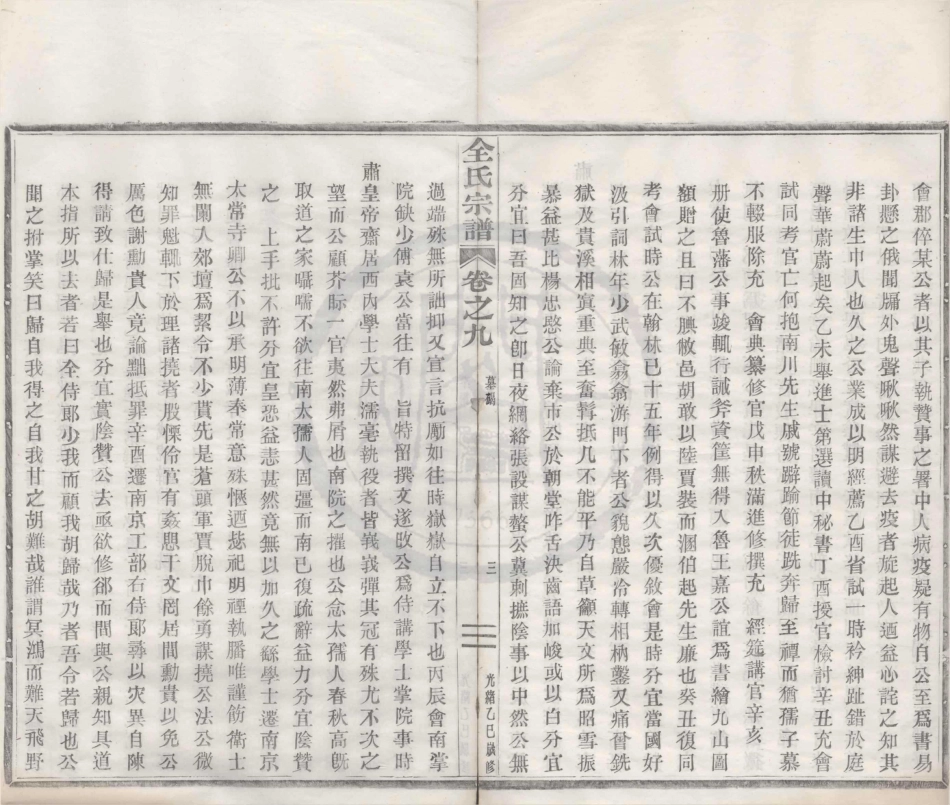 會郡倅某公者以其子執贄事之署中人病疫疑有物自公至爲書易
卦懸之俄聞牖外鬼聲啾啾然謀避去疫者旋起人逎益心詫之知其
非諸生中人也久之公業成以明經薦乙酉省試一時衿紳趾錯於庭
聲華蔚蔚起矣乙未舉進士第選讀中秘書丁酉授官檢討辛丑充會
試同考官亡何抱南川先生戚號躃踰節徒跣奔歸至禫而猶孺子慕
不輟服除充　會典纂修官戊申秩滿進修撰充　經筵講官辛亥
册使魯藩公事竣輒行誡斧資筐無得入魯王嘉公誼爲書繪九山圖
額贈之且曰不腆敝邑胡敢以陸賈裝而溷伯起先生廉也癸丑復同
考會試時公在翰林已十五年例得以久次優敘會是時分宜當國好
汲引詞林年少武敏翕翕游門下者公貌態嚴冷轉相枘鑿又痛晉銑
獄及貴溪相寘重典至奮臂抵几不能平乃自草籲天文所爲昭雪振
暴益甚比楊忠愍公論棄市公於朝堂咋舌決齒語加峻或以白分宜
分宜曰吾固知之卽日夜網絡張設謀螫公冀刺摭陰事以中然公無
全氏宗譜
卷之九
墓碣
三
光緒乙巳歲修
過端殊無所詘抑又宣言抗厲如往時嶽嶽自立不下也丙辰會南掌
院缺少傅袁公當往有　旨特留撰文遂攺公爲侍講學士掌院事時
肅皇帝齋居西內學士大夫濡毫執役者皆峩峩彈其冠有殊尤不次之
望而公顧芥眎一官夷然弗屑也南院之擢也公念太孺人春秋高旣
取道之家囁嚅不欲往南太孺人固彊而南已復疏辭益力分宜陰贊
之　上手批不許分宜皇恐益恚甚然竟無以加久之繇學士遷南京
太常寺卿公不以承明薄奉常意殊愜逎愸祀明禋執膰唯謹飭衛士
無闌入郊壇爲絜令不少貰先是蒼頭軍賈脫巾餘勇謀撓公法公微
知罪魁輒下於理諸撓者股慄伶官有姦慝干文罔居間動貴以免公
厲色謝勳貴人竟論黜抵罪辛酉遷南京工部右侍郞尋以灾異自陳
得請致仕歸是舉也分宜實陰贊公去亟欲修郤而間與公親知具道
本指所以去者若曰全侍郎少我而顧我胡歸哉乃者吾令若歸也公
聞之拊掌笑曰歸自我得之自我甘之胡難哉誰謂冥鴻而難天飛野